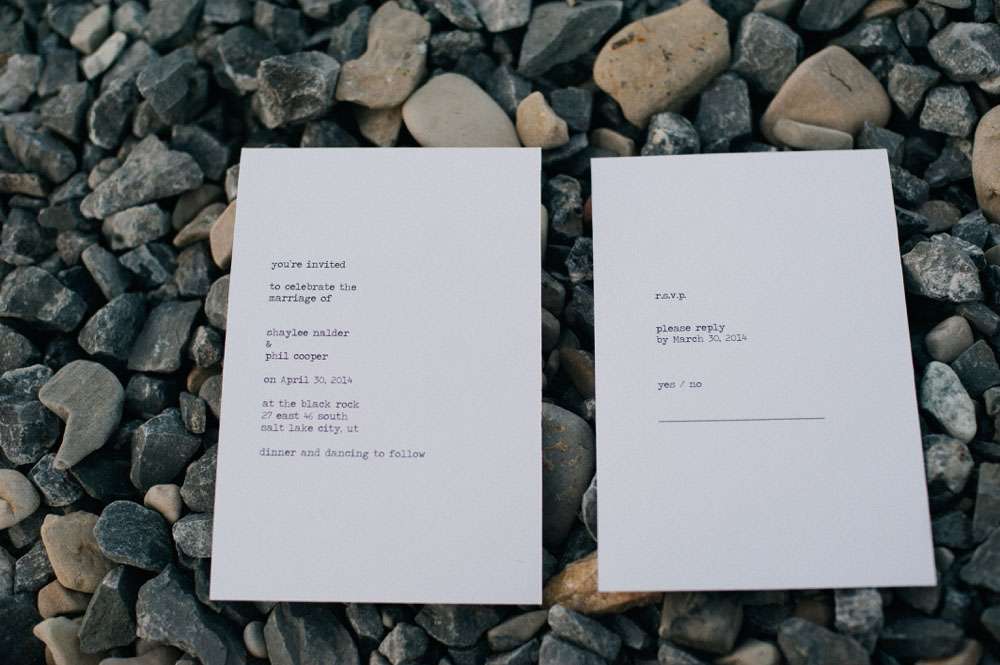 you're invited
to celebrate the
marriage of
shaylee nalder
&
phil cooper
on April 30, 2014
at the black rock
27 east 46 south
salt lake city, ut
dinner and dancing to follow
r.s.v.p.
please reply
by March 30, 2014
yes / no